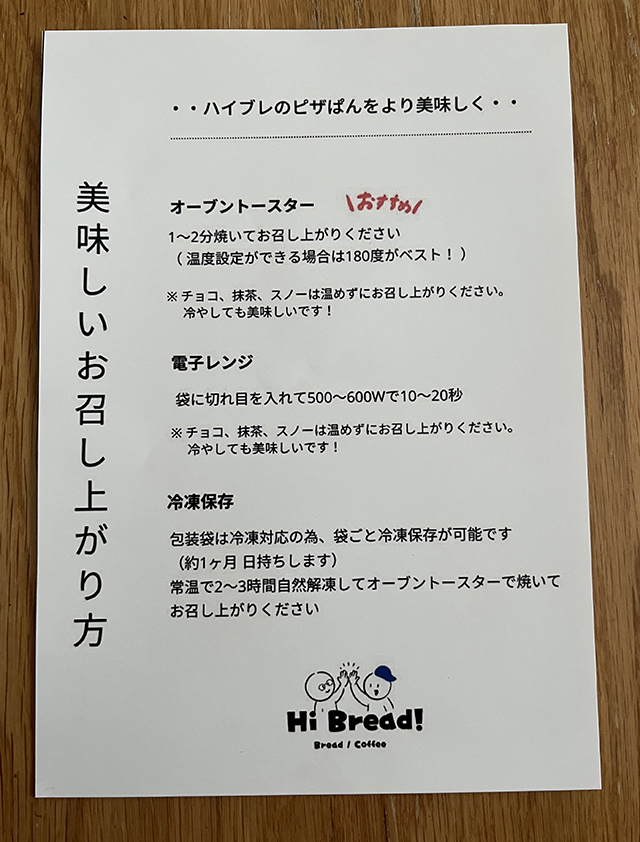 ・・ハイブレのピザぱんをより美味しく・・
美味しいお召し上がり方
オーブントースター \おすすめ/
1〜2分焼いてお召し上がりください
（ 温度設定ができる場合は180度がベスト！ ）
※ チョコ、抹茶、スノーは温めずにお召し上がりください。
冷やしても美味しいです！
電子レンジ
袋に切れ目を入れて500〜600Wで10〜20秒
※ チョコ、抹茶、スノーは温めずにお召し上がりください。
冷やしても美味しいです！
冷凍保存
包装袋は冷凍対応の為、袋ごと冷凍保存が可能です
（約1ヶ月 日持ちします）
常温で2〜3時間自然解凍してオーブントースターで焼いて
お召し上がりください
Hi Bread!
Bread / Coffee